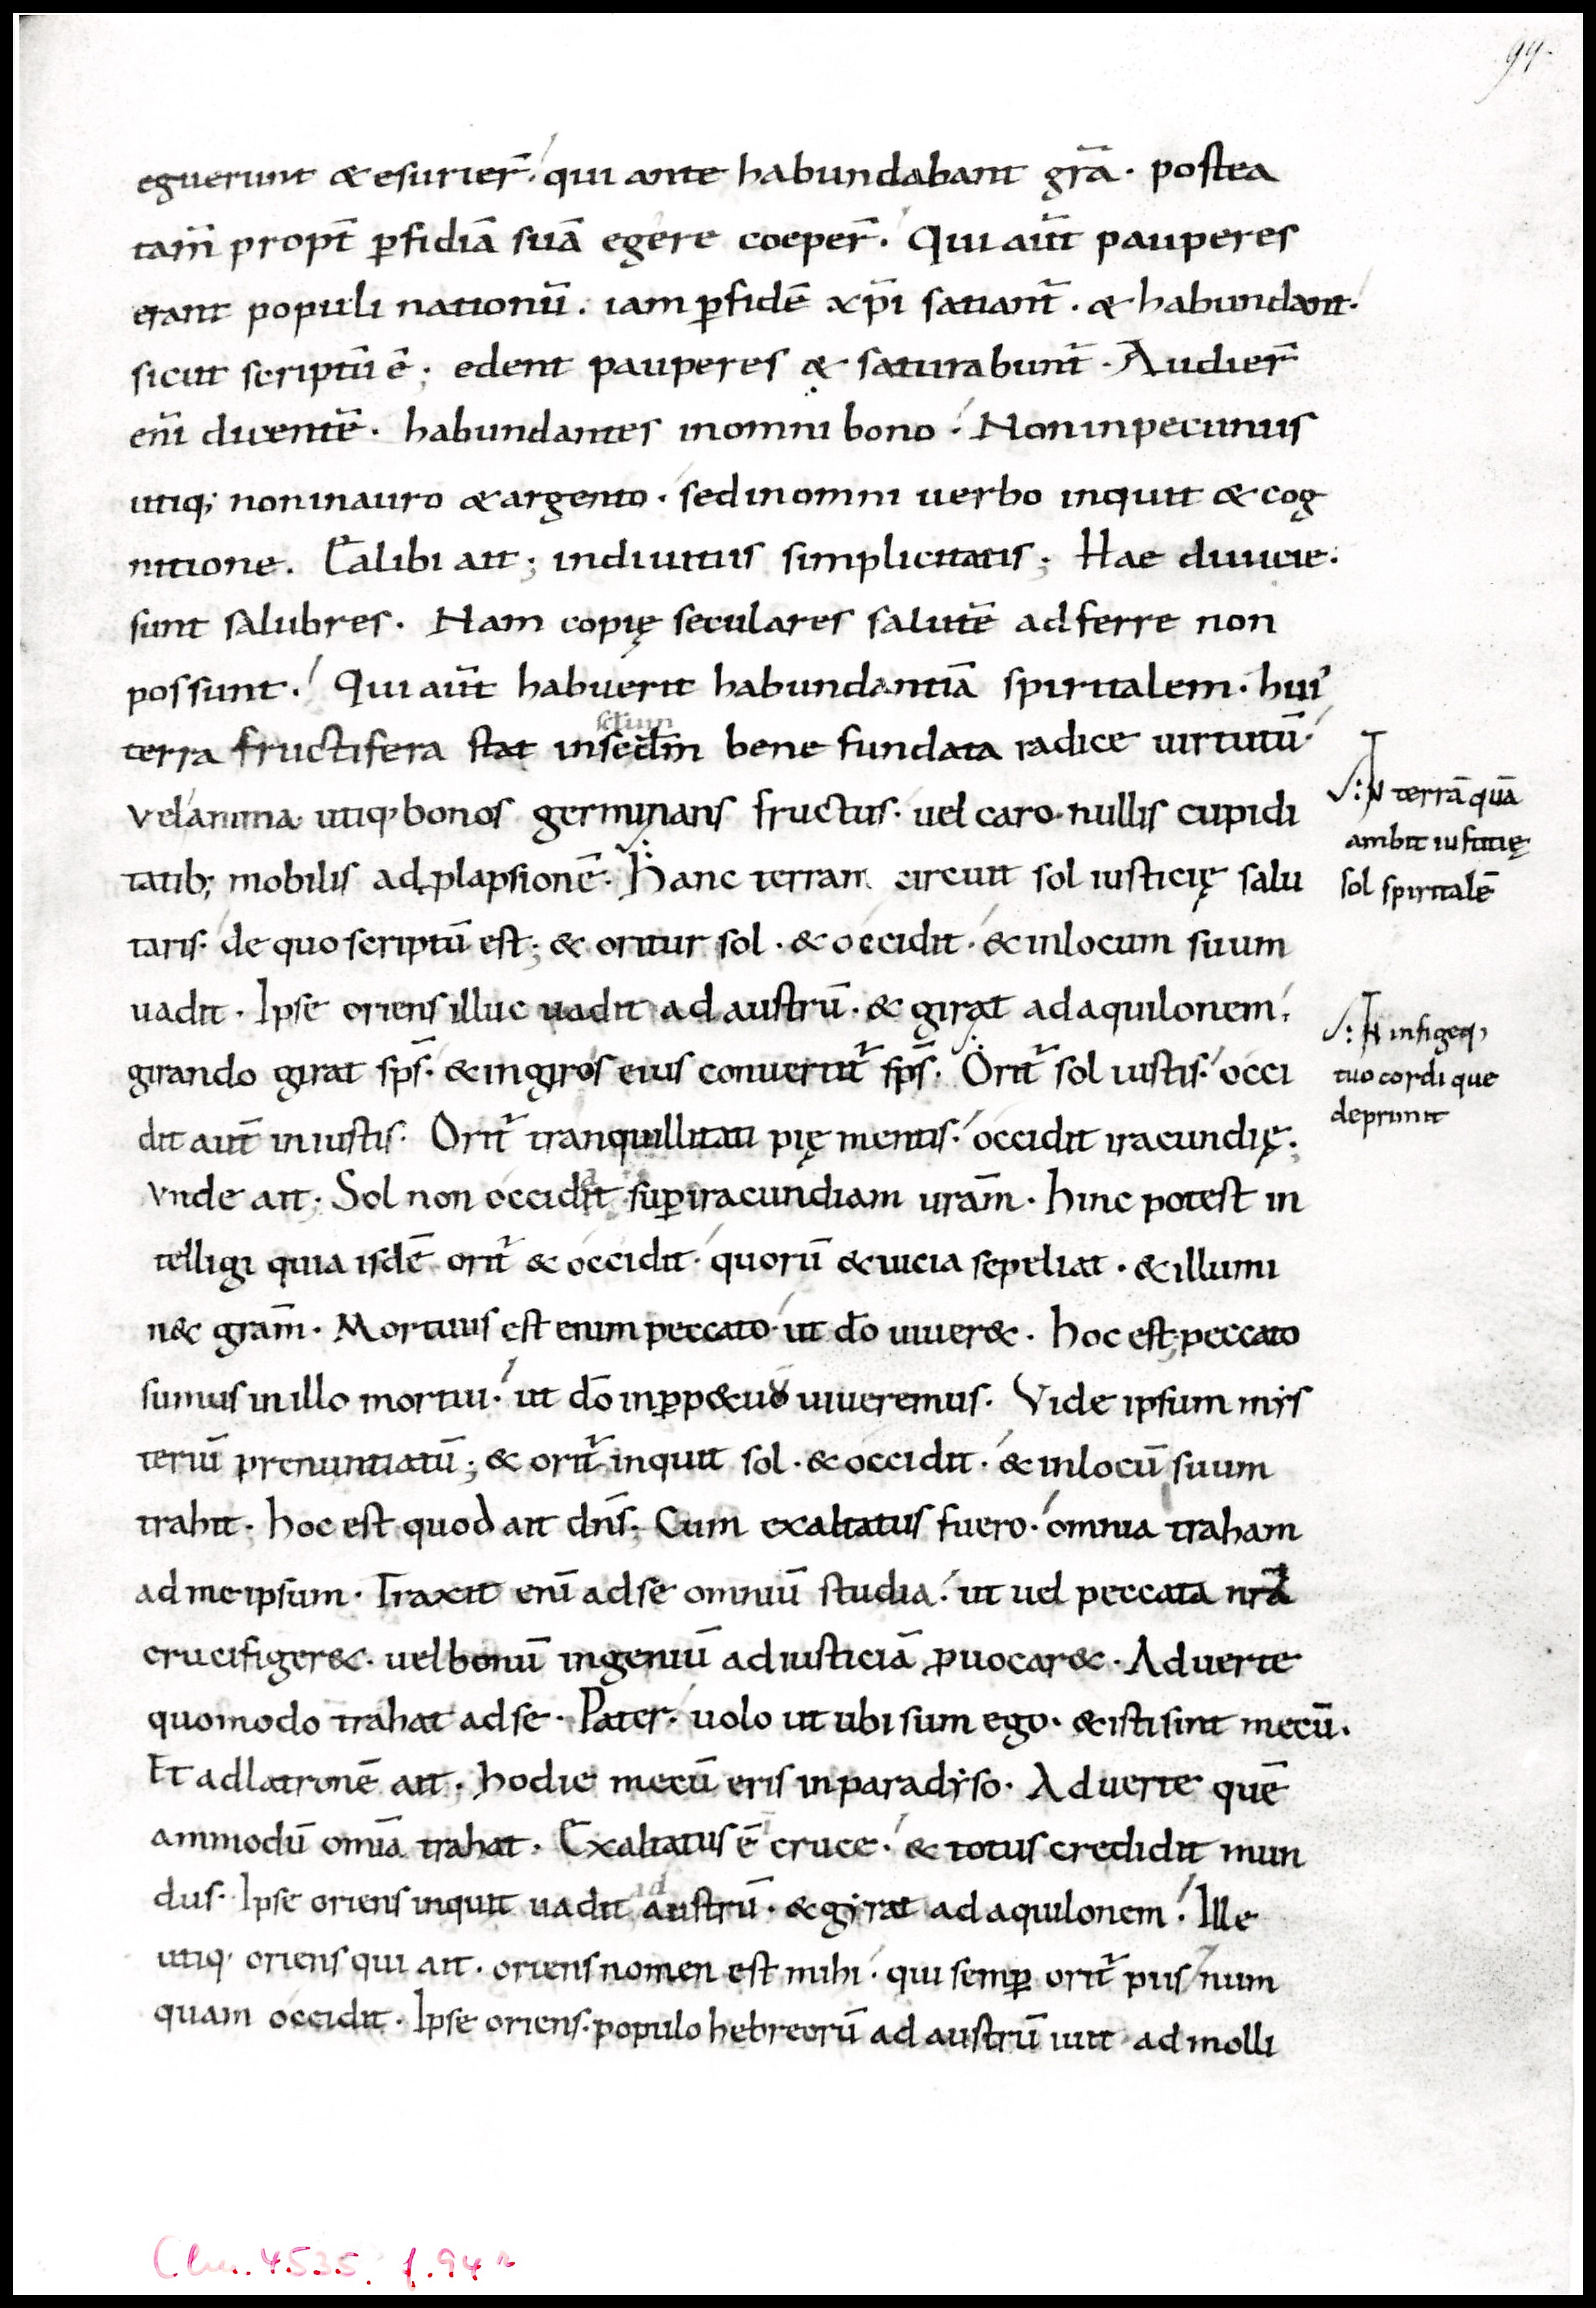 94.
eguerunt & esurier̄. qui ante habundabant gr̄a. postea
tam̄ propt̄ ꝑfidiā suā egere coeper̄. Qui aūt pauperes
erant populi nationū. iam ꝑ fidē xp̄i satiant̄. & habundant.
sicut scriptū ē; edent pauperes & saturabunt̄. Audier̄
eni̅ dicentē. habundantes inomni bono. Non inpecuniis
utiq; non inauro & argento. sed inomni uerbo inquit & cog
nitione. Et alibi ait; indiuitiis simplicitatis; Hae diuicie.
sunt salubres. Nam copię seculares salutē ad ferre non
possunt. Qui aūt habuerit habundantiā spiritalem. hui᾿
terra fructifera stat insed̄m bene fundata radice uirtutū.
vel anima utiq᾿ bonos germinans fructus. uel caro. nullis cupidi
tatib; mobilis ad plapsionē. Hanc terram circuit sol iusticię salu
taris. de quo scriptū est; & oritur sol. & occidit. & inlocum suum
uadit. Ipse oriens illuc uadit ad austrū. & girat ad aquilonem.
girando girat sp̄s. & in giros eius conuertit᷑ sp̄s. Orit᷑ sol iustis. occi
dit aut̄ iniustis. Orit᷑ tranquillitati pię mentis. occidit iracundię;
vnde ait; Sol non occidit suꝑ iracundiam uram̄. hinc potest in
telligi quia isdē orit᷑ & occidit. quorū & uicia sepeliat. & illumi
n& gram̄. Mortuus est enim peccato. ut dō uiuer&. hoc est; peccato
sumus in illo mortui. ut dō inꝑp&uo uiueremus. Vide ipsum mys
teriū prenuntiatū; & orit᷑ inquit sol. & occidit. & inlocū suum
trahit. hoc est quod ait dn̄s; Cum exaltatus fuero. omnia traham
ad me ipsum. Traxit eni̅ ad se omniū studia. ut uel peccata nr̄a
crucifiger&. uel bonū ingeniū ad iusticiā ꝓuocar&. Aduerte
quomodo trahat ad se. Pater. uolo ut ubi sum ego. & isti sint mecū.
Et ad latronē ait; hodie mecū eris in paradyso. Aduerte quē
ammodū omi̅a trahat. Exaltatus ē cruce. & totus credidit mun
dus. Ipse oriens inquit uadit ad austrū. & gyrat ad aquilonem. Ille
utiq᾿ oriens qui ait. oriens nomen est mihi. qui semꝑ orit᷑ piis num
quam occidit. Ipse oriens. populo hebreorū ad austrū iuit ad molli
IN terrā quā
ambit iusticię
sol spiritalē
IN infigeq᾿
tuo cordi que
deprimit
Clm. 4535, f. 94 r